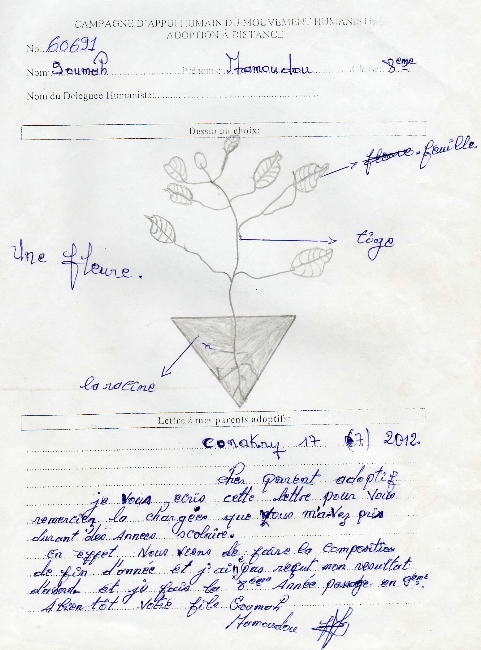 CAMPAGNE D'APPUI HUMAIN DU MOUVEMENT HUMANISTE
ADOPTION À DISTANCE
No. 60691
Nom: Soumah Prénom: Mamoudou Classe: 8ème
Nom du Deleguée Humaniste:
Dessin au choix:
fleure feuille
tige
Une fleure.
la racine
Lettre à mes parents adoptifs:
Conakry 17 (7) 2012.
Cher parent adoptif
je vous ecris cette lettre pour vous
remercier la chargées que vous m'avez pris
durant des Annees scolaire.
En effet Nous viens de faire la composition
de fin d'année et j'ai pas reçut mon resultat
d'abord et je fais la 8ème Année passage en 9ème
A bien tôt votre fils Soumah
Mamoudou